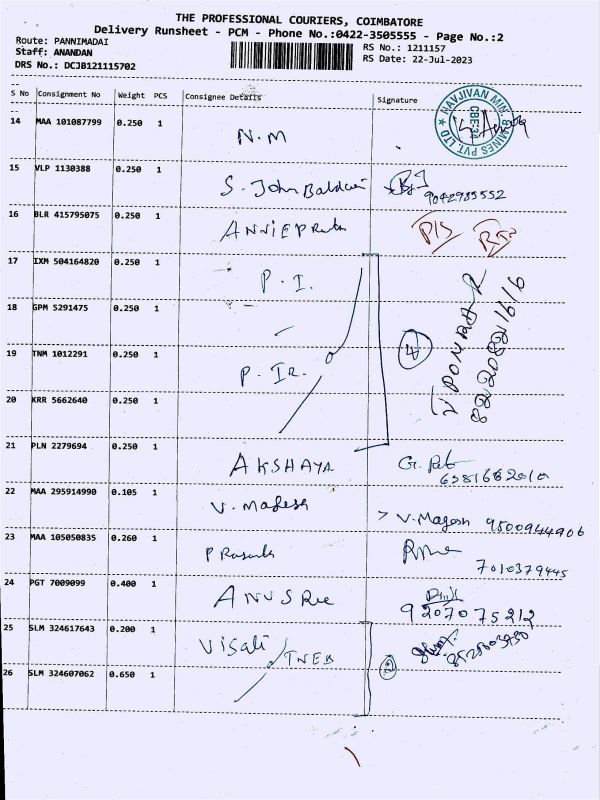 THE PROFESSIONAL COURIERS, COIMBATORE
Delivery Runsheet - PCM - Phone No.:0422-3505555 - Page No.:2
Route: PANNIMADAI RS No.: 1211157
Staff: ANANDAN RS Date: 22-Jul-2023
DRS No.: DCJB121115702
S No Consignment No Weight PCS Consignee Details Signature
NAVJIVAN MIN. & MINES PVT. LTD
CBE-34
14 MAA 101087799 0.250 1 N.M
15 VLP 1130388 0.250 1 S. John
9042985552
16 BLR 415795075 0.250 1 ANNIE
17 IXM 504164820 0.250 1 P. I.
18 GPM 5291475 0.250 1
4
19 TNM 1012291 0.250 1 P. Ir.
20 KRR 5662640 0.250 1
21 PLN 2279694 0.250 1 AKSHAYA
22 MAA 295914990 0.105 1 V. Mahesh
V. Magesh 9500944906
23 MAA 105050835 0.260 1
7010379445
24 PGT 7009099 0.400 1 ANUSRee
9207075212
25 SLM 324617643 0.200 1 Visali / TNEB
2
26 SLM 324607062 0.650 1